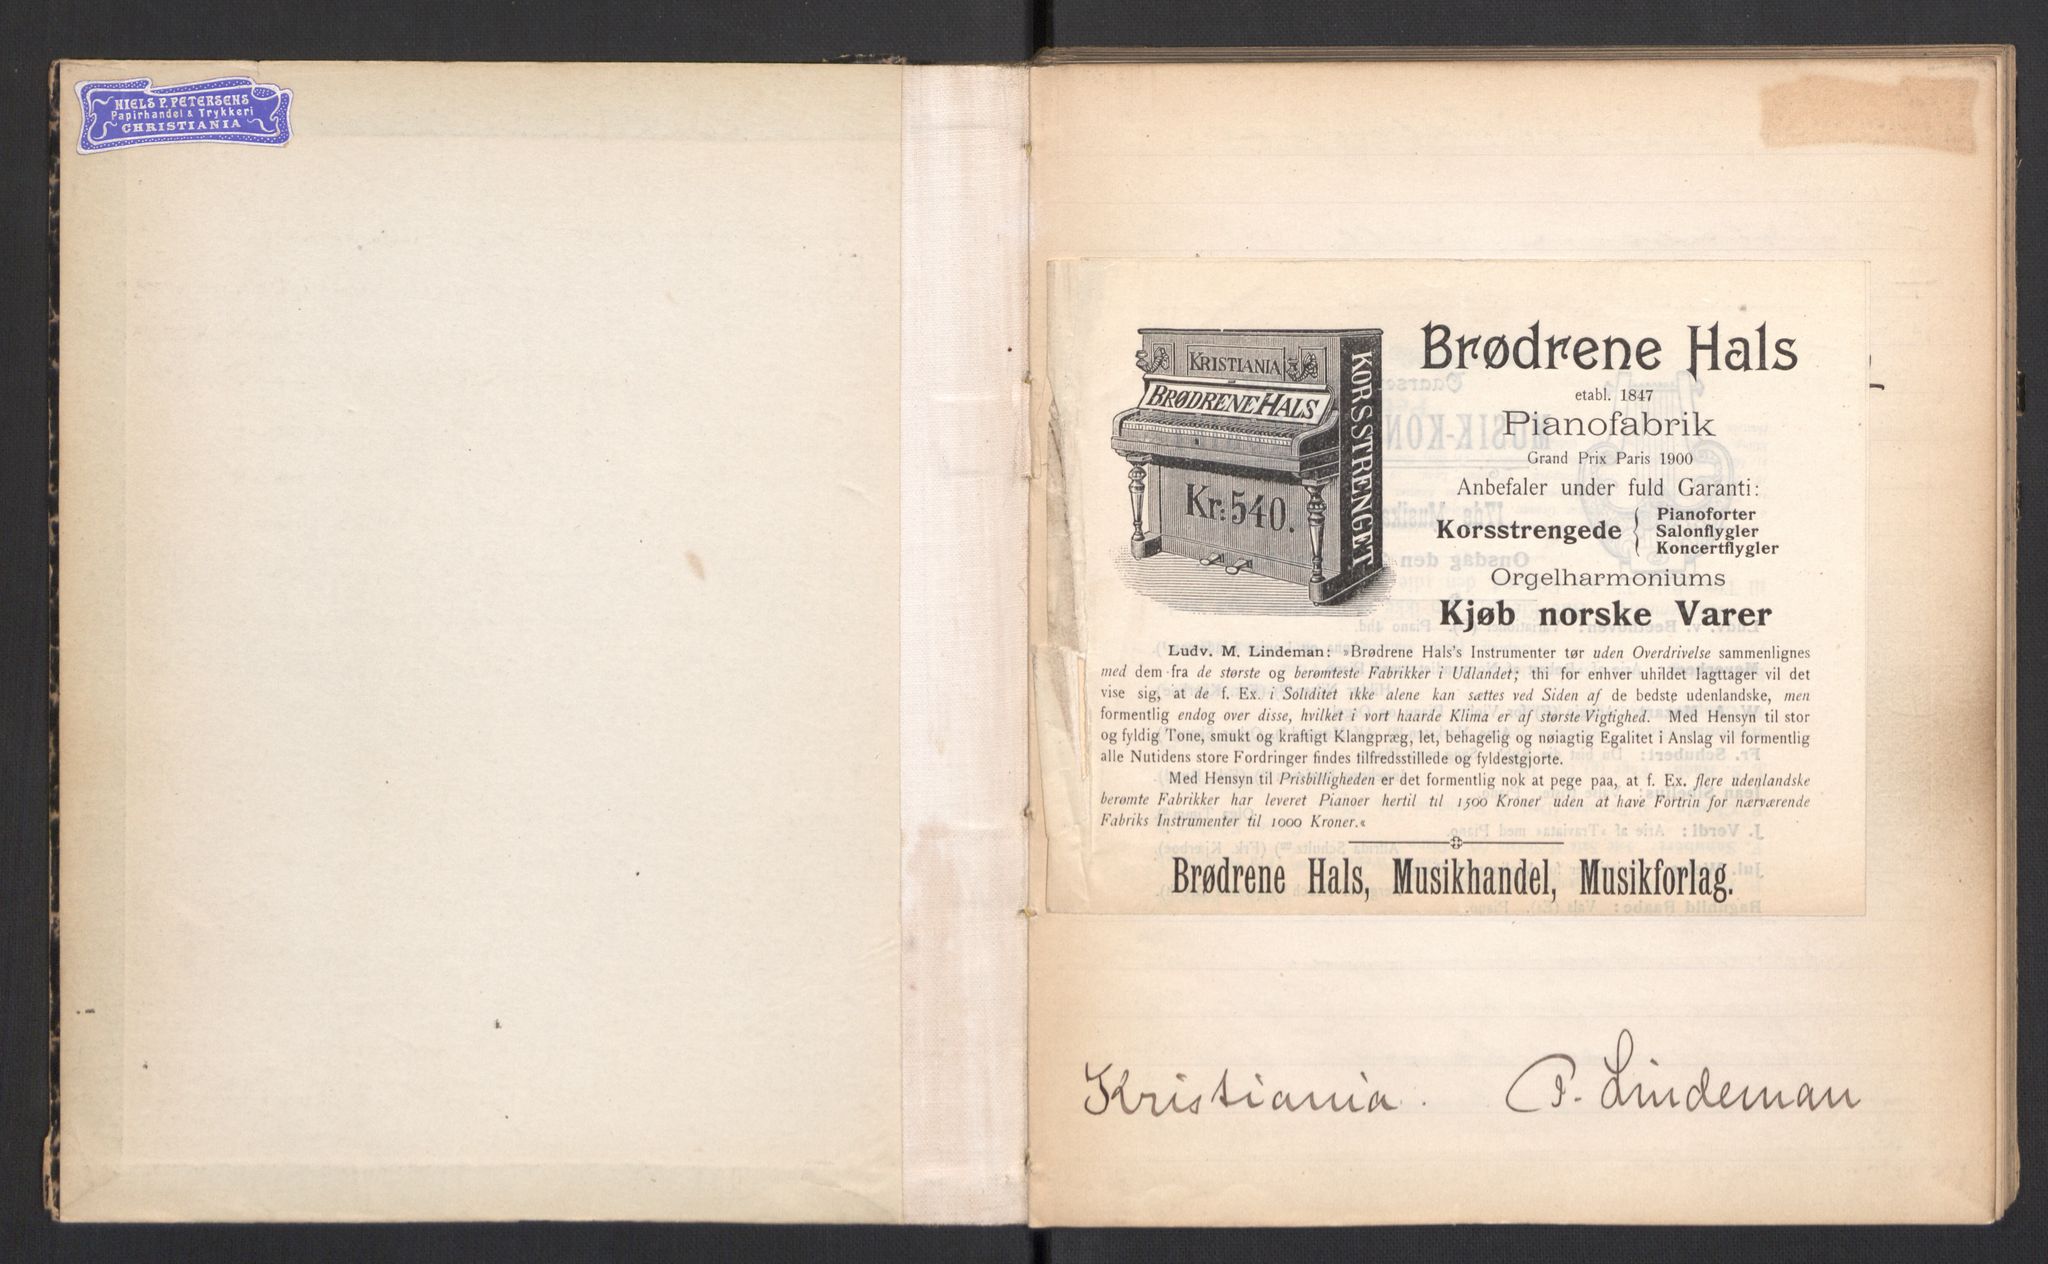 NIELS P. PETERSENS
Papirhandel & Trykkeri
CHRISTIANIA
KRISTIANIA
BRØDRENE HALS
KORSSTRENGET
Kr: 540.
Brødrene Hals
etabl. 1847
Pianofabrik
Grand Prix Paris 1900
Anbefaler under fuld Garanti:
Korsstrengede { Pianoforter
Salonflygler
Koncertflygler
Orgelharmoniums
Kjøb norske Varer
Ludv. M. Lindeman: »Brødrene Hals's Instrumenter tør uden Overdrivelse sammenlignes
med dem fra de største og berømteste Fabrikker i Udlandet; thi for enhver uhildet Iagttager vil det
vise sig, at de f. Ex. i Soliditet ikke alene kan sættes ved Siden af de bedste udenlandske, men
formentlig endog over disse, hvilket i vort haarde Klima er af største Vigtighed. Med Hensyn til stor
og fyldig Tone, smukt og kraftigt Klangpræg, let, behagelig og nøiagtig Egalitet i Anslag vil formentlig
alle Nutidens store Fordringer findes tilfredsstillede og fyldestgjorte.
Med Hensyn til Prisbilligheden er det formentlig nok at pege paa, at f. Ex. flere udenlandske
berømte Fabrikker har leveret Pianoer hertil til 1500 Kroner uden at have Fortrin for nærværende
Fabriks Instrumenter til 1000 Kroner.«
Brødrene Hals, Musikhandel, Musikforlag.
Kristiania. P. Lindeman